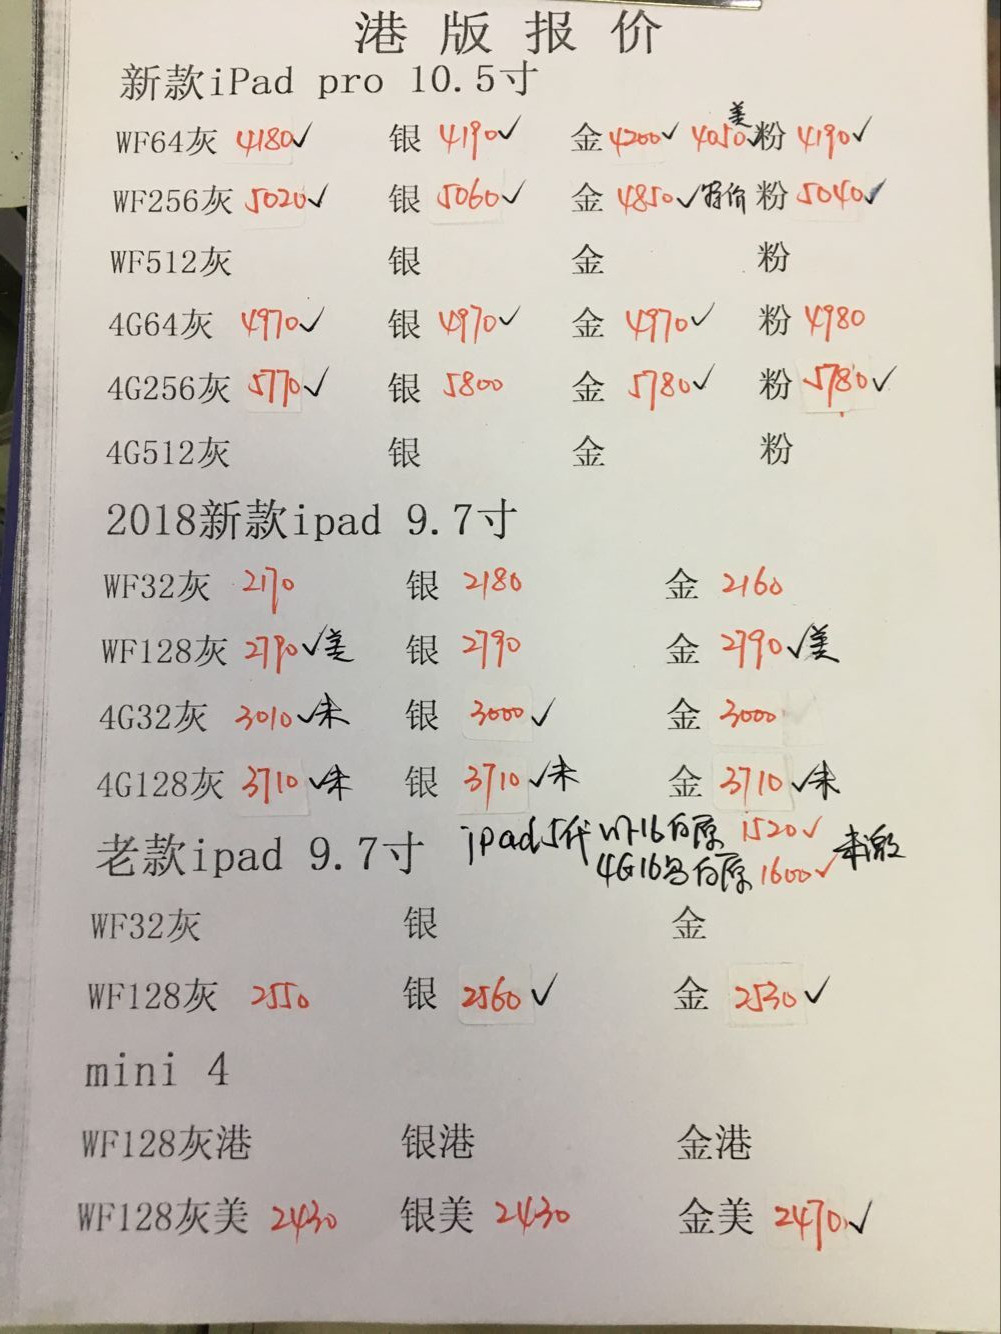 港版报价
新款iPad pro 10.5寸
美
WF64灰 4180✓ 银 4190✓ 金 4200✓ 4050✓ 粉 4190✓
WF256灰 5020✓ 银 5060✓ 金 4850✓特价 粉 5040✓
WF512灰 银 金 粉
4G64灰 4970✓ 银 4970✓ 金 4970✓ 粉 4980
4G256灰 5770✓ 银 5800 金 5780✓ 粉 5780✓
4G512灰 银 金 粉
2018新款ipad 9.7寸
WF32灰 2170 银 2180 金 2160
WF128灰 2790✓美 银 2790 金 2790✓美
4G32灰 3010✓未 银 3000✓ 金 3000
4G128灰 3710✓未 银 3710✓未 金 3710✓未
老款ipad 9.7寸 ipad5代 WF16白原 1520✓ 未激
4G16 白原 1600✓
WF32灰 银 金
WF128灰 2550 银 2560✓ 金 2530✓
mini 4
WF128灰港 银港 金港
WF128灰美 2430 银美 2430 金美 2470✓